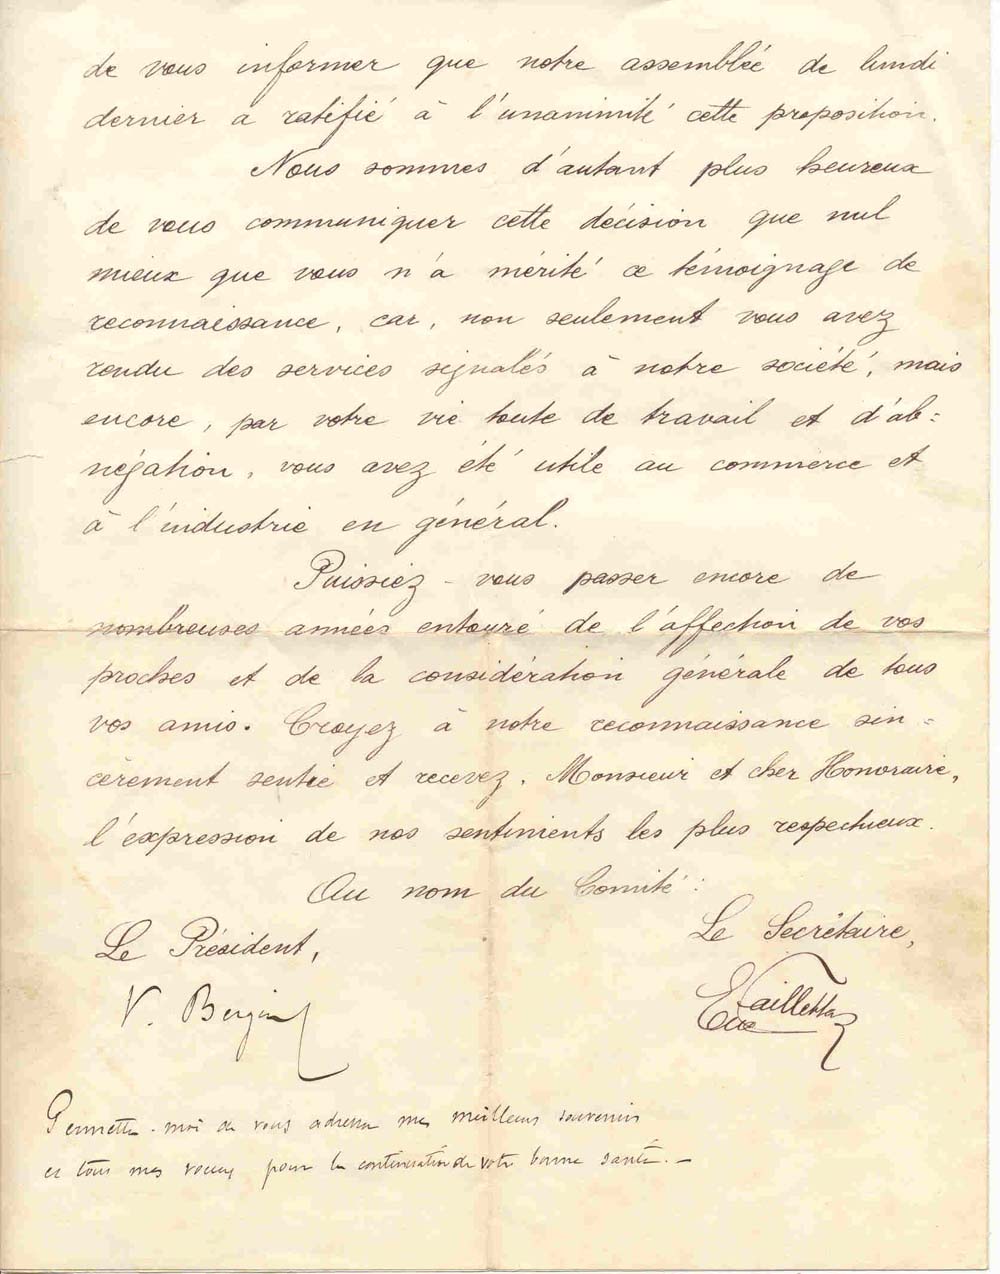 de vous informer que notre assemblée de lundi
dernier a ratifié à l'unanimité cette proposition.
Nous sommes d'autant plus heureux
de vous communiquer cette décision que nul
mieux que vous n'a mérité ce témoignage de
reconnaissance, car, non seulement vous avez
rendu des services signalés à notre société, mais
encore, par votre vie toute de travail et d'ab=
négation, vous avez été utile au commerce et
à l'industrie en général.
Puissiez-vous passer encore de
nombreuses années entouré de l'affection de vos
proches et de la considération générale de tous
vos amis. Croyez à notre reconnaissance sin=
cèrement sentie et recevez, Monsieur et cher Honoraire,
l'expression de nos sentiments les plus respectueux.
Au nom du Comité:
Le Secrétaire,
Le Président,
V.
Permettez-moi de vous adresser mes meilleurs souvenirs
et tous mes voeux pour la continuation de votre bonne santé. —